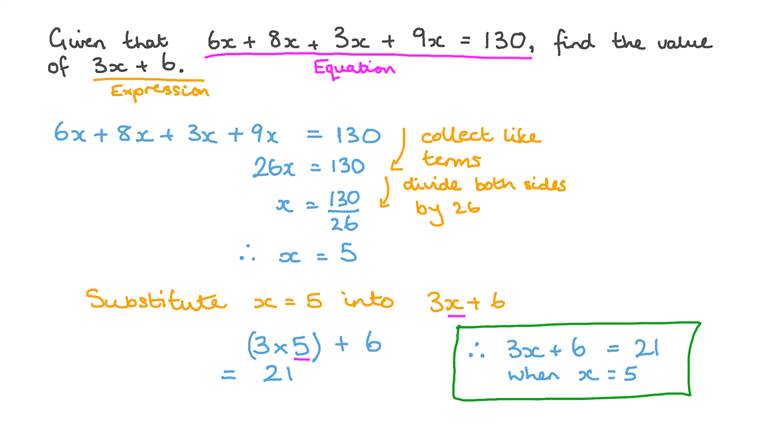 Given that 6x + 8x + 3x + 9x = 130, find the value
of 3x + 6.
Equation
Expression
6x + 8x + 3x + 9x = 130
collect like
terms
26x = 130
divide both sides
by 26
x = 130/26
∴ x = 5
Substitute x = 5 into 3x + 6
(3 × 5) + 6
= 21
∴ 3x + 6 = 21
when x = 5